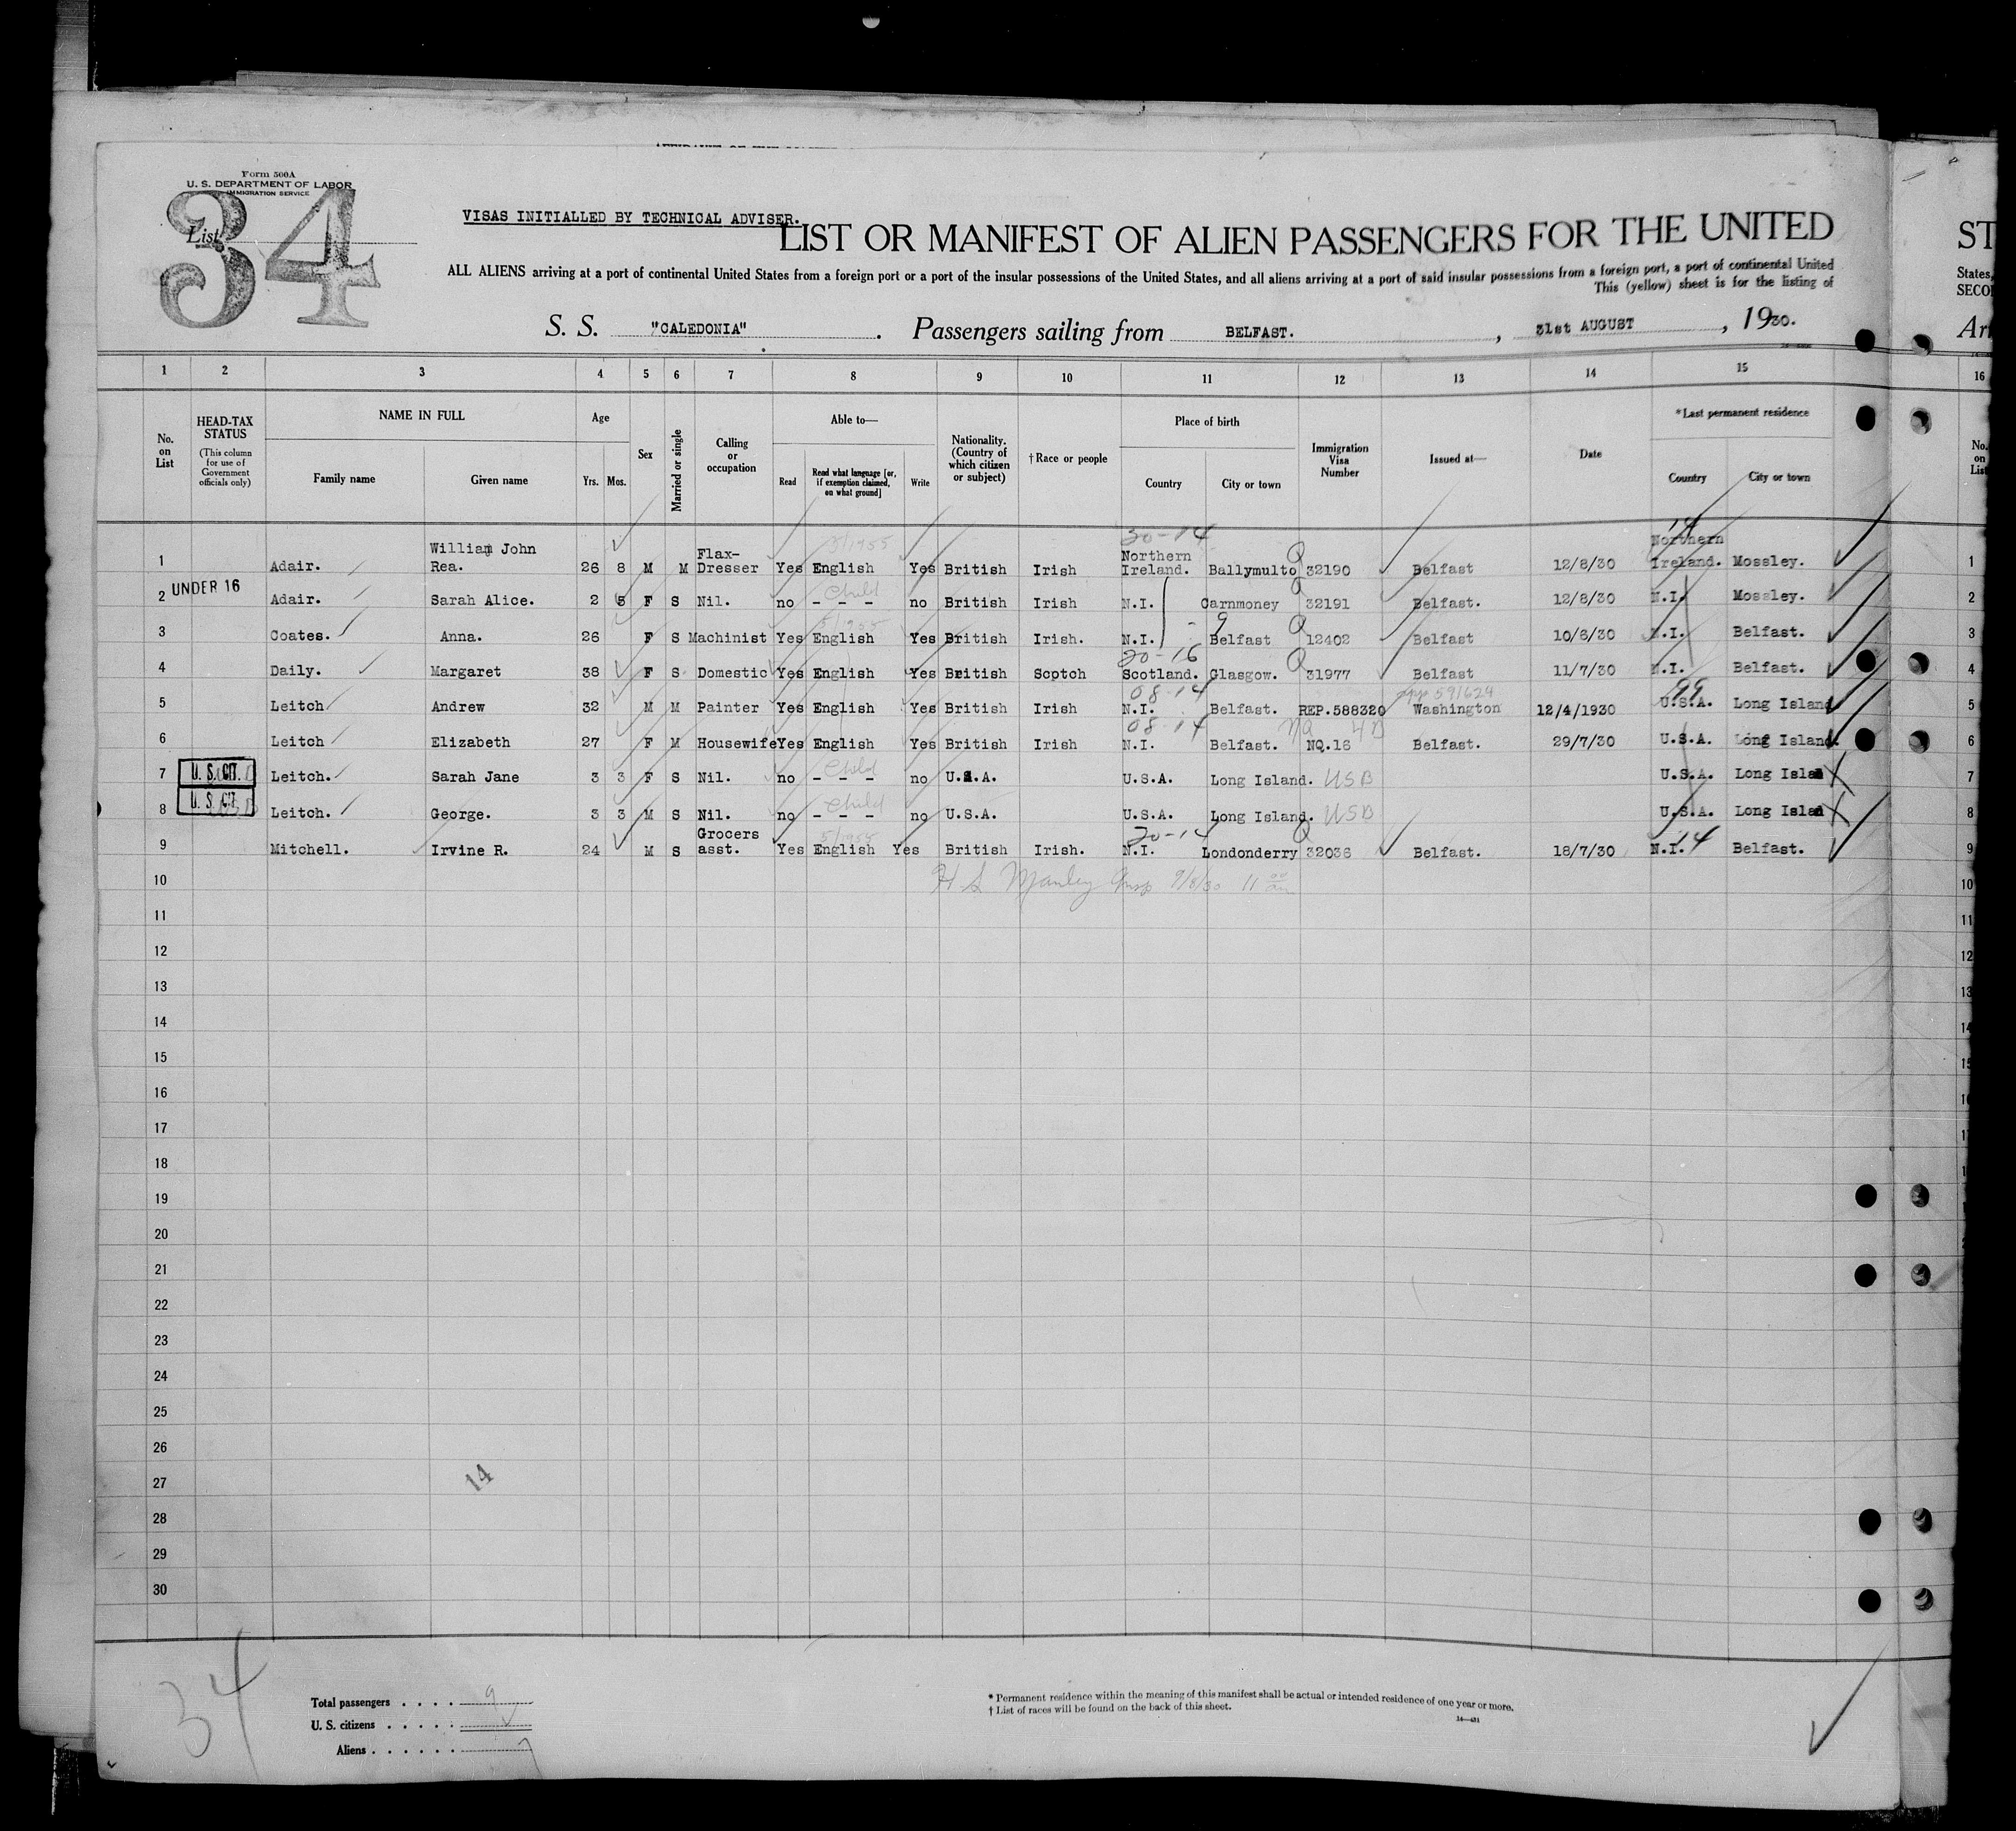 Form 500A
U. S. DEPARTMENT OF LABOR
IMMIGRATION SERVICE
34
List
VISAS INITIALLED BY TECHNICAL ADVISER.
LIST OR MANIFEST OF ALIEN PASSENGERS FOR THE UNITED
ALL ALIENS arriving at a port of continental United States from a foreign port or a port of the insular possessions of the United States, and all aliens arriving at a port of said insular possessions from a foreign port, a port of continental United
This (yellow) sheet is for the listing of
S. S. "CALEDONIA". Passengers sailing from BELFAST., 31st AUGUST, 1930.
ST
States,
SECO
Arr
1 2 3 4 5 6 7 8 9 10 11 12 13 14 15 16
No. on List
HEAD-TAX STATUS
(This column for use of Government officials only)
NAME IN FULL
Family name Given name
Age
Yrs. Mos.
Sex
Married or single
Calling or occupation
Able to—
Read
Read what language [or, if exemption claimed, on what ground]
Write
Nationality. (Country of which citizen or subject)
†Race or people
Place of birth
Country City or town
Immigration Visa Number
Issued at—
Date
*Last permanent residence
Country City or town
No. on List
30-14 14
1 Adair. William John Rea. 26 8 M M Flax-Dresser Yes English Yes British Irish Northern Ireland. Ballymulto Q 32190 Belfast 12/8/30 Northern Ireland. Mossley. 1
Child
2 UNDER 16 Adair. Sarah Alice. 2 5 F S Nil. no - - - no British Irish N.I. Carnmoney 32191 Belfast. 12/8/30 N.I. Mossley. 2
3 Coates. Anna. 26 F S Machinist Yes English Yes British Irish. N.I. Belfast Q 12402 Belfast 10/6/30 N.I. Belfast. 3
20-16
4 Daily. Margaret 38 F S Domestic Yes English Yes British Scotch Scotland. Glasgow. Q 31977 Belfast 11/7/30 N.I. Belfast. 4
08-14 591624 99
5 Leitch Andrew 32 M M Painter Yes English Yes British Irish N.I. Belfast. REP.588320 Washington 12/4/1930 U.S.A. Long Island 5
08-14
6 Leitch Elizabeth 27 F M Housewife Yes English Yes British Irish N.I. Belfast. NQ.16 Belfast. 29/7/30 U.S.A. Long Island. 6
Child
7 U. S. CIT. Leitch. Sarah Jane 3 3 F S Nil. no - - - no U.S.A. U.S.A. Long Island. USB U.S.A. Long Islan 7
Child
8 U. S. CIT. Leitch. George. 3 3 M S Nil. no - - - no U.S.A. U.S.A. Long Island. USB U.S.A. Long Islan 8
20-14
9 Mitchell. Irvine R. 24 M S Grocers asst. Yes English Yes British Irish. N.I. Londonderry Q 32036 Belfast. 18/7/30 N.I. 14 Belfast. 9
10 H S Manley Insp 9/8/30 11 00 am 10
11 11
12 12
13 13
14 14
15 15
16
17
18
19
20
21
22
23
24
25
26
27
14
28
29
30
34
Total passengers . . . . 9
U. S. citizens . . . . .
Aliens . . . . . .
* Permanent residence within the meaning of this manifest shall be actual or intended residence of one year or more.
† List of races will be found on the back of this sheet.